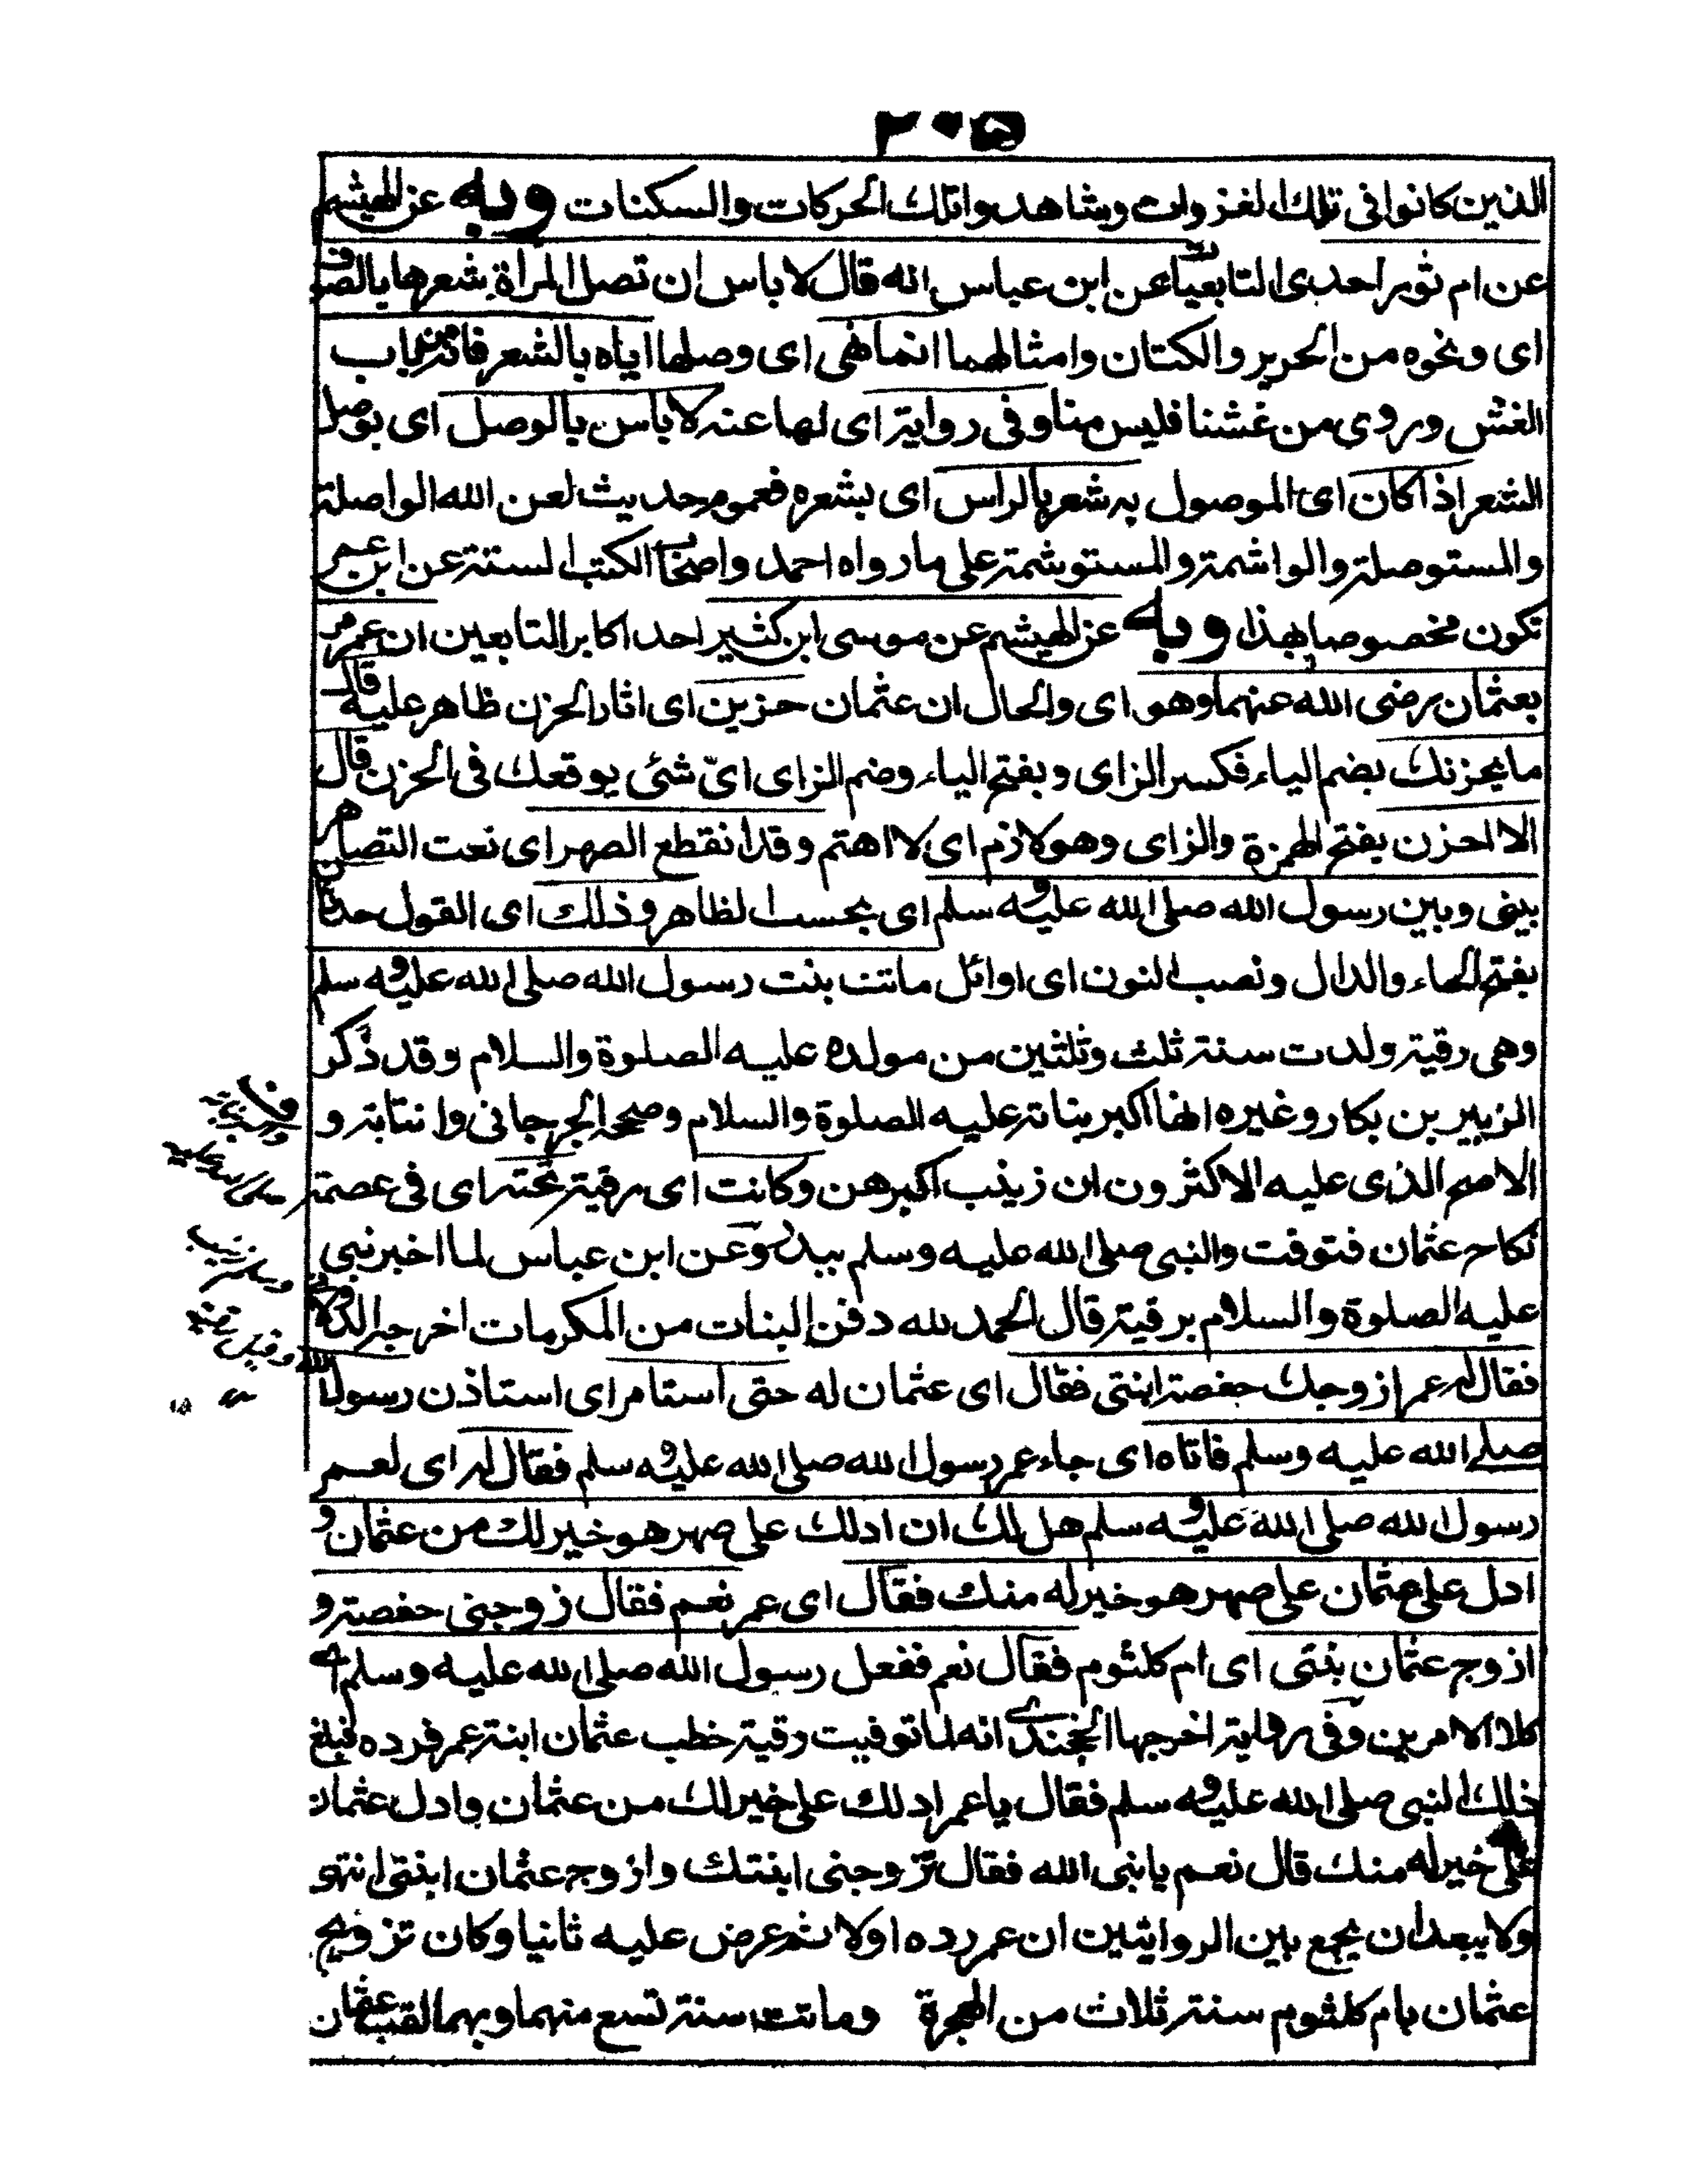 ٢٠٥
الذين كانوا فى تلك الغزوات وشاهدوا تلك الحركات والسكنات وبه عن الهيثم
عن ام ثور احدى التابعيات عن ابن عباس انه قال لا باس ان تصل المراة شعرها بالصوف
اى ونحوه من الحرير والكتان وامثالهما انما نهى اى وصلها اياه بالشعر فانه من باب
الغش وروى من غشنا فليس منا وفى رواية اى لها عنه لا باس بالوصل اى بوصل
الشعر اذا كان اى الموصول به شعر بالراس اى بشعره فعموم حديث لعن الله الواصلة
والمستوصلة والواشمة والمستوشمة على ما رواه احمد واصحاب الكتب الستة عن ابن عمر
تكون مخصوصا بهذا وبه عن الهيثم عن موسى ابن كثير احد اكابر التابعين ان عمر مر
بعثمان رضى الله عنهما وهو اى والحال ان عثمان حزين اى اثار الحزن ظاهر عليه قال
ما يحزنك بضم الياء فكسر الزاى وبفتح الياء وضم الزاى اىّ شئى يوقعك فى الحزن قال
الا احزن بفتح الهمزة والزاى وهو لازم اى لا اهتم وقد انقطع الصهر اى نعت التصاهر
بينى وبين رسول الله صلى الله عليه وسلم اى بحسب الظاهر وذلك اى القول حدثان
بفتح الحاء والدال ونصب النون اى اوائل ماتت بنت رسول الله صلى الله عليه وسلم
وهى رقية ولدت سنة ثلث وثلثين من مولده عليه الصلوة والسلام وقد ذكر
الزبير بن بكار وغيره انها اكبر بناته عليه الصلوة والسلام وصححه الجرجانى وانتابة و
الاصح الذى عليه الاكثرون ان زينب اكبرهن وكانت اى رقية تحته اى فى عصمة
نكاح عثمان فتوفت والنبى صلى الله عليه وسلم ببدر وعن ابن عباس لما اخبر نبى
عليه الصلوة والسلام برقية قال الحمد لله دفن البنات من المكرمات اخرجه الدولابى
فقال له عمر ازوجك حفصة ابنتى فقال اى عثمان له حتى استامر اى استاذن رسول الله
صلى الله عليه وسلم فاتاه اى جاء عمر رسول الله صلى الله عليه وسلم فقال له اى لعمر
رسول الله صلى الله عليه وسلم هل لك ان ادلك على صهر هو خير لك من عثمان و
ادل على عثمان على صهر هو خير له منك فقال اى عمر نعم فقال زوجنى حفصة و
ازوج عثمان بنتى اى ام كلثوم فقال نعم ففعل رسول الله صلى الله عليه وسلم اى
كلا الامرين وفى رواية اخرجها الخجندى انه لما توفيت رقية خطب عثمان ابنة عمر فرده فبلغ
ذلك النبى صلى الله عليه وسلم فقال يا عمر ادلك على خير لك من عثمان وادل عثمان
على خير له منك قال نعم يا نبى الله فقال تزوجنى ابنتك وازوج عثمان ابنتى انتهى
ولا يبعد ان يجمع بين الروايتين ان عمر رده اولا ثم عرض عليه ثانيا وكان تزويج
عثمان بام كلثوم سنة ثلاث من الهجرة وماتت سنة تسع منهما وبهما لقب عثمان